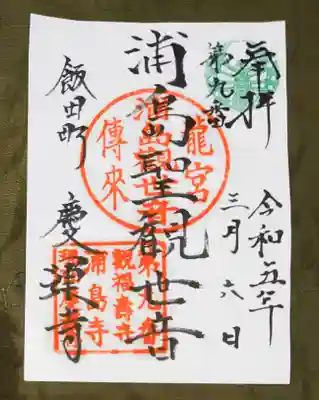 奉拝
第九番
令和五年
三月六日
浦島聖観世音
飯田町 慶運寺
龍宮
傳来
浦島観世音
第九番
観福壽寺
浦島寺